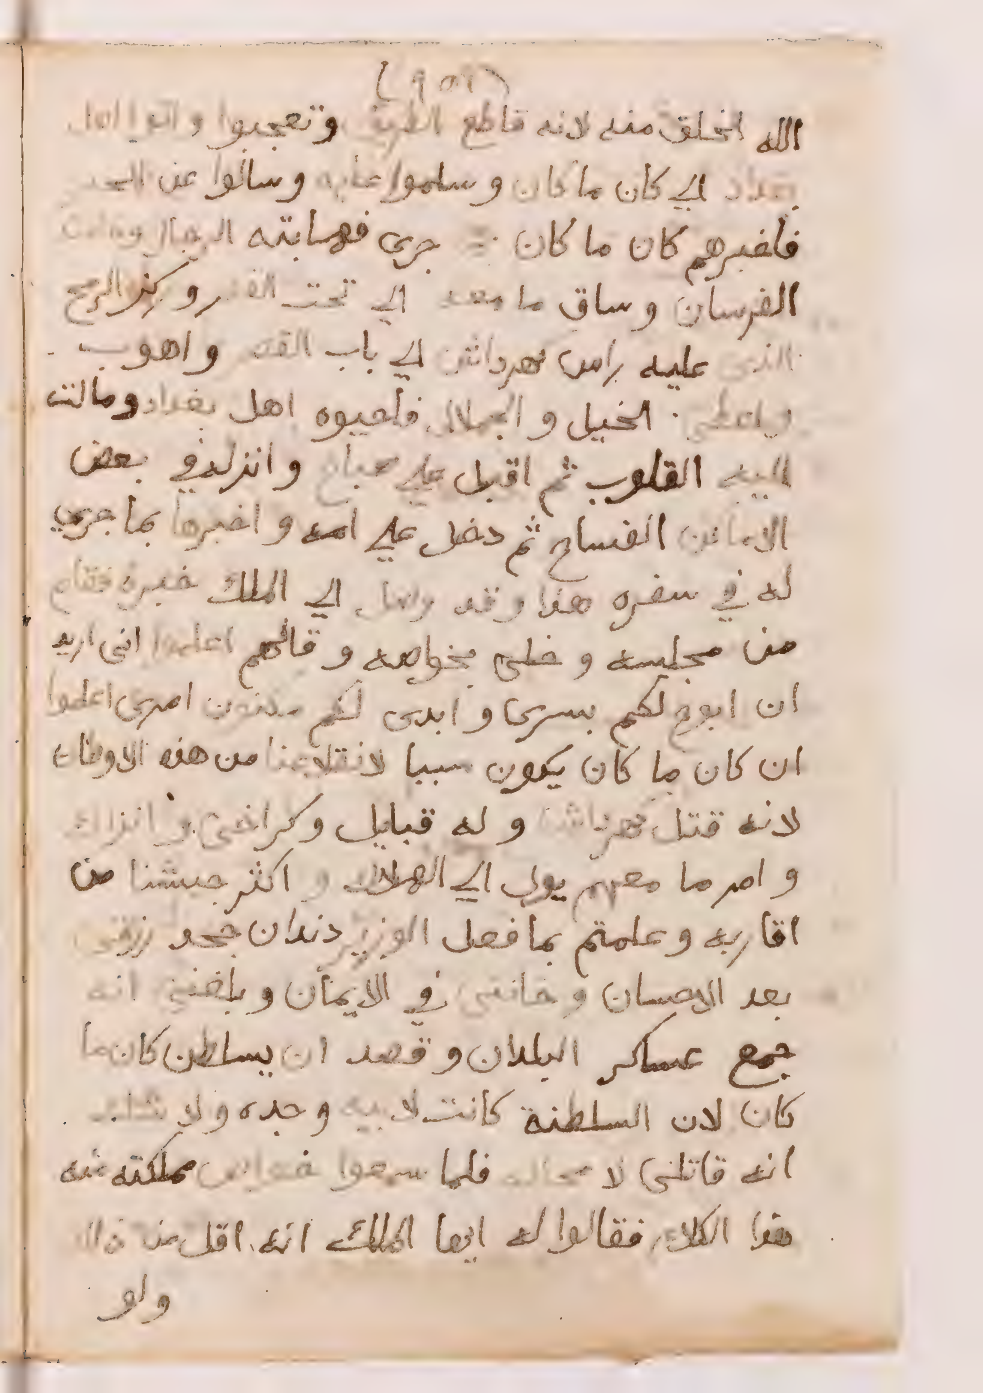 الله الخلق منه لانه قاطع الطريق وتعجبوا واتوا اهل
بغداد الي كان ما كان وسلموا عليه وسالوا عن الخبر
فاخبرهم كان ما كان جرى فهابته الرجال
الفرسان وساق ما معه الي تحت القصر وركز الرمح
الذي عليه راس كهرداش الي باب القصر واهوب
واعطي الخيل والجمال فاحبوه اهل بغداد ومالت
اليه القلوب ثم اقبل علي صباح وانزله في بعض
الاماكن الفساح ثم دخل علي امه واخبرها بما جري
له في سفره هذا وقد وصل الي الملك خبره فقام
من مجلسه وخلي بخواصه وقالهم اعلموا اني اريد
ان ابوح لكم بسري وابدى لكم مكنون امرى اعلموا
ان كان ما كان يكون سببا لانقلاعنا من هذه الاوطان
لانه قتل كهرداش وله قبايل وكراخي واتراك
وامر ما معهم يول الي الهلاك واكثر جيشنا من
اقاربه وعلمتم بما فعل الوزير دندان جحد
بعد الاحسان وخانني في الايمان وبلغني انه
جمع عساكر البلدان وقصد ان يسلطن كان ما
كان لان السلطنة كانت لابيه وجده ولا شك
انه قاتلني لا محاله فلما سمعوا خواص مملكته منه
هذا الكلام فقالوا له ايها الملك انه اقل من ذالك
ولو